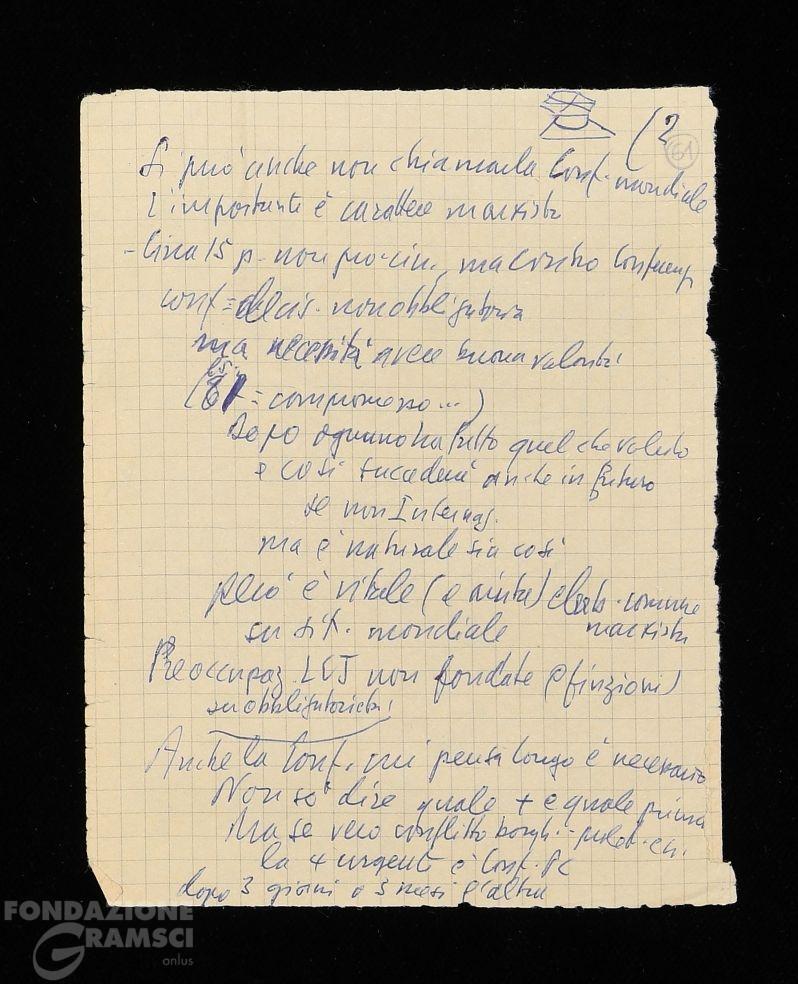 (2
61
Si può anche non chiamarla Conf. mondiale
l'importante è carattere marxista
- Circa 15 p. non pro-cin., ma contro Conferenz
conf = decis. non obbligatoria
ma necessità avere buona volontà
= compromesso ...)
Dopo ognuno ha fatto quel che voluto
e così succederà anche in futuro
se non Internaz.
ma è naturale sia così
però è vitale (e aiuta) elab. comune
su sit. mondiale marxista
Preoccupaz. LCJ non fondate (finzioni)
su obbligatorietà
Anche la Conf. cui pensa Longo è necessaria
Non so dire quale + e quale prima
Ma se vero conflitto borgh. - prolet. ecc.
la + urgente è Conf. PC
dopo 3 giorni o 3 mesi l'altra
FONDAZIONE
GRAMSCI
onlus